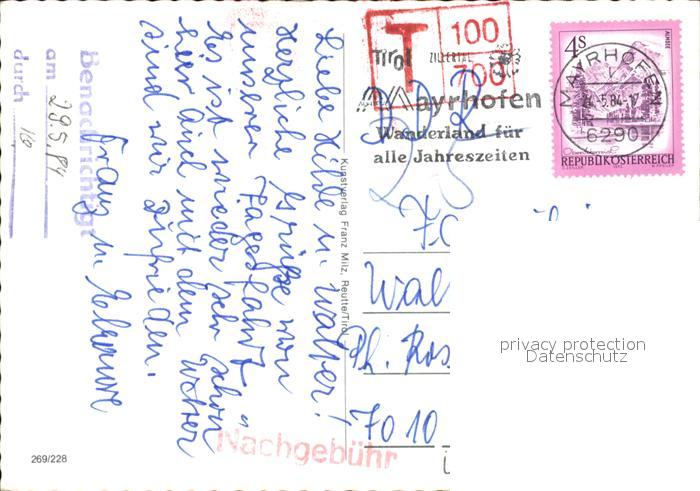 Liebe Hilde u. Walter!
Herzliche Grüße von
unserer "Tagesfahrt"
Es ist wieder sehr schön
hier und mit dem Wetter
sind wir zufrieden.
Franz u. Eleonore
Benachrichtigt
am 29.5.84
durch
269/228
Kunstverlag Franz Milz, Reutte/Tirol
Nachgebühr
T 100
700
Tirol ZILLERTAL
Mayrhofen
Wanderland für
alle Jahreszeiten
DDR
4S
ALMSEE
MAYRHOFEN
6290
REPUBLIK ÖSTERREICH
Wal
Ph. Ros
7010
privacy protection
Datenschutz